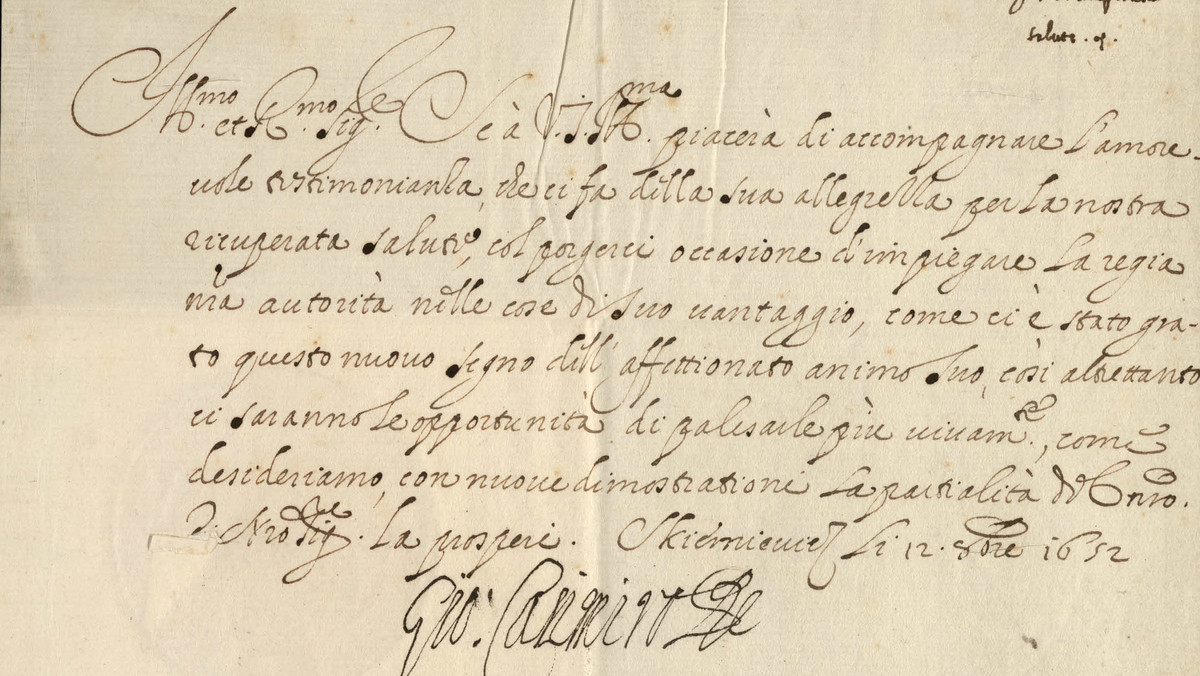 salute. &.
Ill.mo et R.mo Sig.re Se à V.S. Ill.ma piacerà di accompagnare l'amore-
uole testimonianza, che ci fa della sua allegrezza per la nostra
ricuperata salute, col porgerci occasione d'impiegare la regia
nra autorità nelle cose di suo uantaggio, come ci è stato gra-
to questo nuouo segno dell'affettionato animo suo, così altrettanto
ci saranno le opportunità di palesarle più uiuam.te, come
desideriamo, con nuoue dimostrationi la partialità del nro.
Nro Sig.re la prosperi. Skierniewicz li 12. 8bre 1652
Gio. Casimiro Re